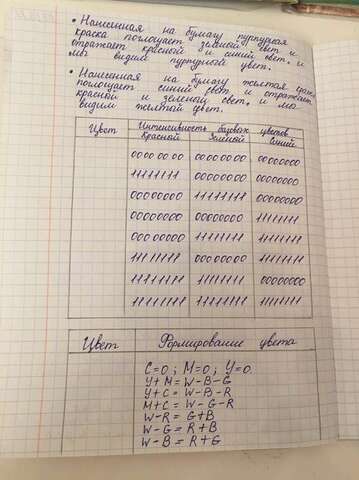 • Нанесенная на бумагу пурпурная
краска поглощает зеленый свет и
отражает красный и синий свет, и
мы видим пурпурный цвет.
• Нанесенная на бумагу желтая краска
поглощает синий свет и отражает
красный и зеленый свет, и мы
видим желтый цвет.
Цвет Интенсивность базовых цветов
Красный Зеленый Синий
00000000 00000000 00000000
11111111 00000000 00000000
00000000 11111111 00000000
00000000 00000000 11111111
00000000 11111111 11111111
11111111 00000000 11111111
11111111 11111111 00000000
11111111 11111111 11111111
Цвет Формирование цвета
C=0; M=0; Y=0.
Y+M = W-B-G
Y+C = W-B-R
M+C = W-G-R
W-R = G+B
W-G = R+B
W-B = R+G